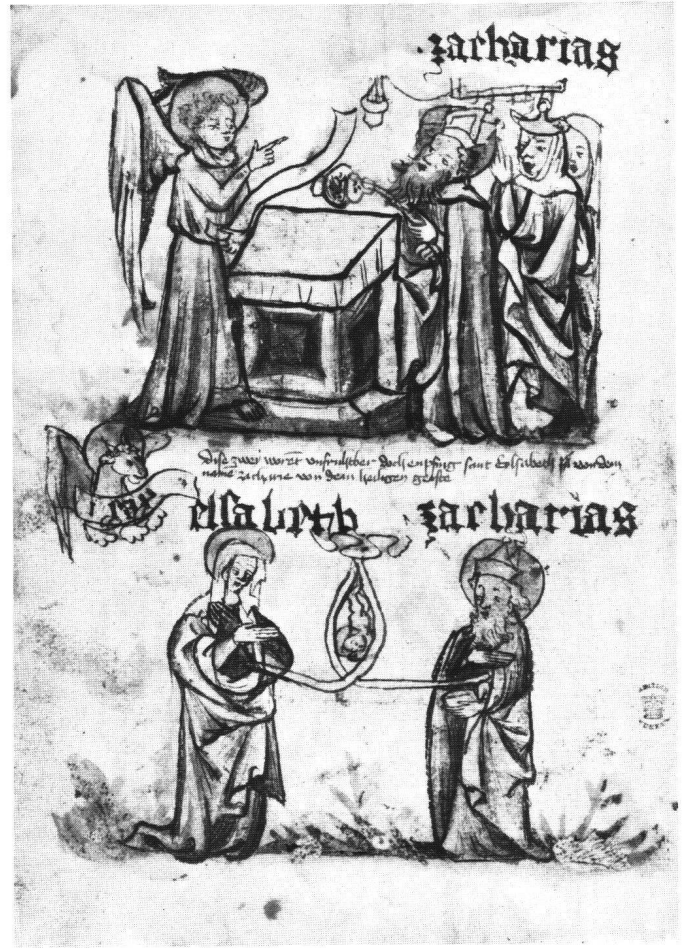 zacharias
dise zwei worēt unfruchtber doch enpfing sant Elsabeth
name zacharie von dem heiligen geiste
elsabeth zacharias